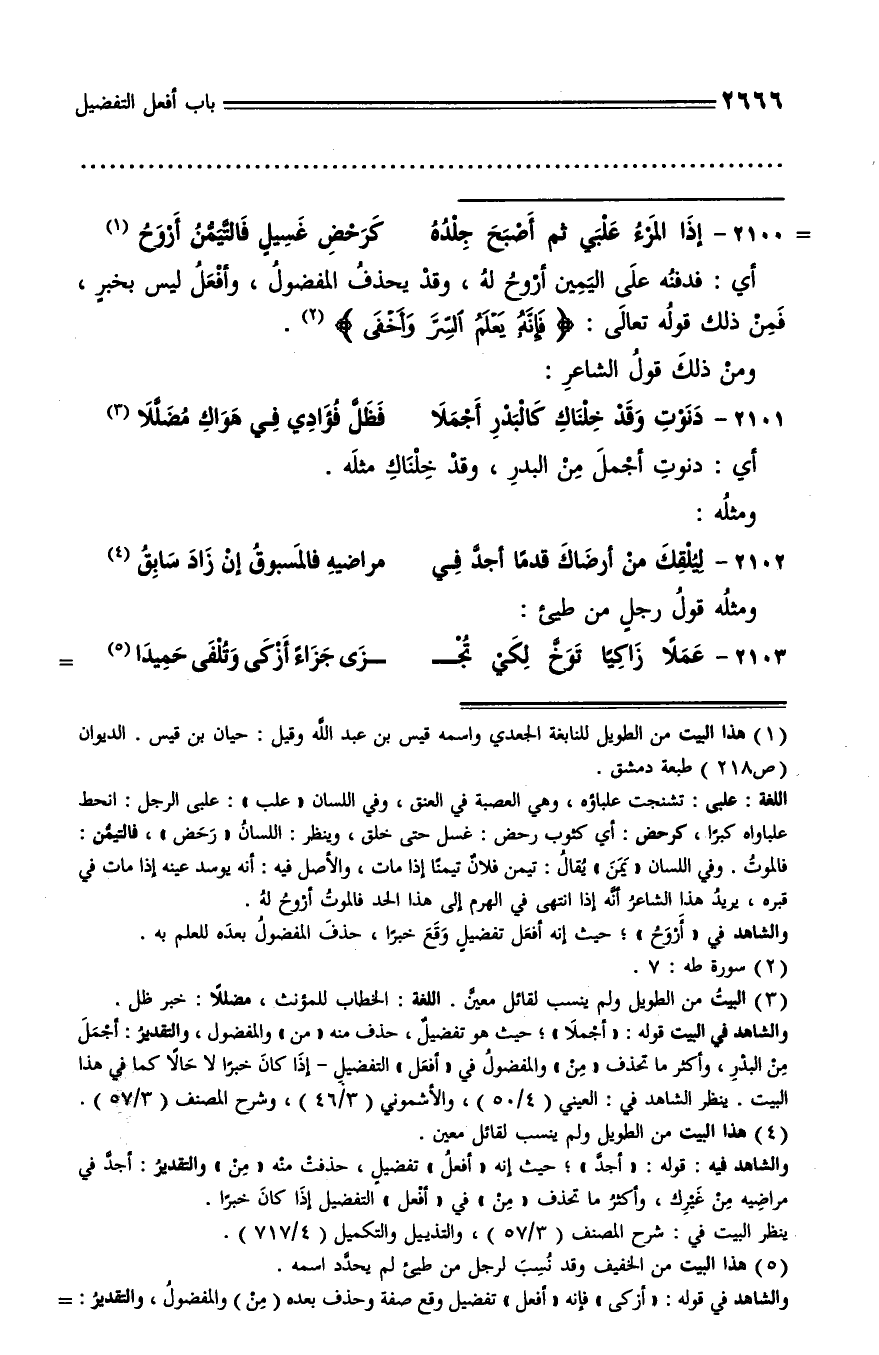 ٢٦٦٦ باب أفعل التفضيل
................................................................................
= ٢١٠٠ - إذَا المَرْءُ عَلْبَي ثم أَصْبَحَ جِلْدُهُ كَرَحْضِ غَسِيلٍ فَالتَّيَمُّنُ أَرْوَحُ (١)
أي : فدفنُه علَى اليَمِين أرْوحُ لهُ ، وقدْ يحذفُ المفضولُ ، وأفْعَلُ ليس بخبرٍ ،
فَمِنْ ذلك قولُه تعالَى : ﴿ فَإِنَّهُ يَعْلَمُ ٱلسِّرَّ وَأَخْفَى ﴾ (٢) .
ومنْ ذلكَ قولُ الشاعرِ :
٢١٠١ - دَنَوْتِ وَقَدْ خِلْنَاكِ كَالْبَدْرِ أَجْمَلَا فَظَلَّ فُؤَادِي فِي هَوَاكِ مُضَلَّلَا (٣)
أي : دنوتِ أجْملَ مِنْ البدرِ ، وقدْ خِلْنَاكِ مثلَه .
ومثلُه :
٢١٠٢ - لِيُلْقِكَ منْ أرضَاكَ قدمًا أجدَّ فِي مراضيهِ فالمَسبوقُ إنْ زَادَ سَابِقُ (٤)
ومثلُه قولُ رجلٍ من طيئ :
٢١٠٣ - عَمَلًا زَاكِيًا تَوَخَّ لِكَيْ تُجْـ ـزَى جَزَاءً أَزْكَى وَتُلْفَى حَمِيدَا (٥) =
(١) هذا البيت من الطويل للنابغة الجعدي واسمه قيس بن عبد اللَّه وقيل : حيان بن قيس . الديوان
(ص٢١٨ ) طبعة دمشق .
اللغة : علبى : تشنجت علباؤه ، وهي العصبة في العنق ، وفي اللسان « علب » : علبى الرجل : انحط
علباواه كبرًا ، كرحض : أي كثوب رحض : غسل حتى خلق ، وينظر : اللسانُ « رَحَض » ، فالتيمُن :
فالموتُ . وفي اللسان « يَمَنَ » يُقالُ : تيمن فلانٌ تيمنًا إذا مات ، والأصل فيه : أنه يوسد عينه إذا مات في
قبره ، يريدُ هذا الشاعرُ أنَّه إذا انتهى في الهرم إلى هذا الحد فالموتُ أرْوحُ لهُ .
والشاهد في « أَرْوَحُ » ؛ حيث إنه أفعَل تفضيلٍ وَقَعَ خبرًا ، حذفَ المفضولُ بعدَه للعلم به .
(٢) سورة طه : ٧ .
(٣) البيتُ من الطويل ولم ينسب لقائل معينَّ . اللغة : الخطاب للمؤنث ، مضللًا : خبر ظل .
والشاهد في البيت قوله : « أجْملَا » ؛ حيث هو تفضيلٌ ، حذف منه « من » والمفضول ، والتقديرُ : أجْمَلَ
مِنْ البدْرِ ، وأكثر ما تحذف « مِنْ » والمفضولُ في « أفعَل » التفضيلِ - إذَا كانَ خبرًا لا حَالًا كما في هذا
البيت . ينظر الشاهد في : العيني ( ٥٠/٤ ) ، والأشموني ( ٤٦/٣ ) ، وشرح المصنف ( ٥٧/٣ ) .
(٤) هذا البيت من الطويل ولم ينسب لقائل معين .
والشاهد فيه : قوله : « أجدَّ » ؛ حيث إنه « أفعلُ » تفضيلٍ ، حذفتْ منْه « مِنْ » والتقديرُ : أجدَّ في
مراضِيه مِنْ غَيْرِك ، وأكثرُ ما تحذف « مِنْ » في « أفْعل » التفضيل إذَا كانَ خبرًا .
ينظر البيت في : شرح المصنف ( ٥٧/٣ ) ، والتذييل والتكميل ( ٧١٧/٤ ) .
(٥) هذا البيت من الخفيف وقد نُسِبَ لرجل من طيئ لم يحدَّد اسمه .
والشاهد في قوله : « أزكى » فإنه « أفعل » تفضيل وقع صفة وحذف بعده ( مِنْ ) والمفضولُ ، والتقديرُ : =